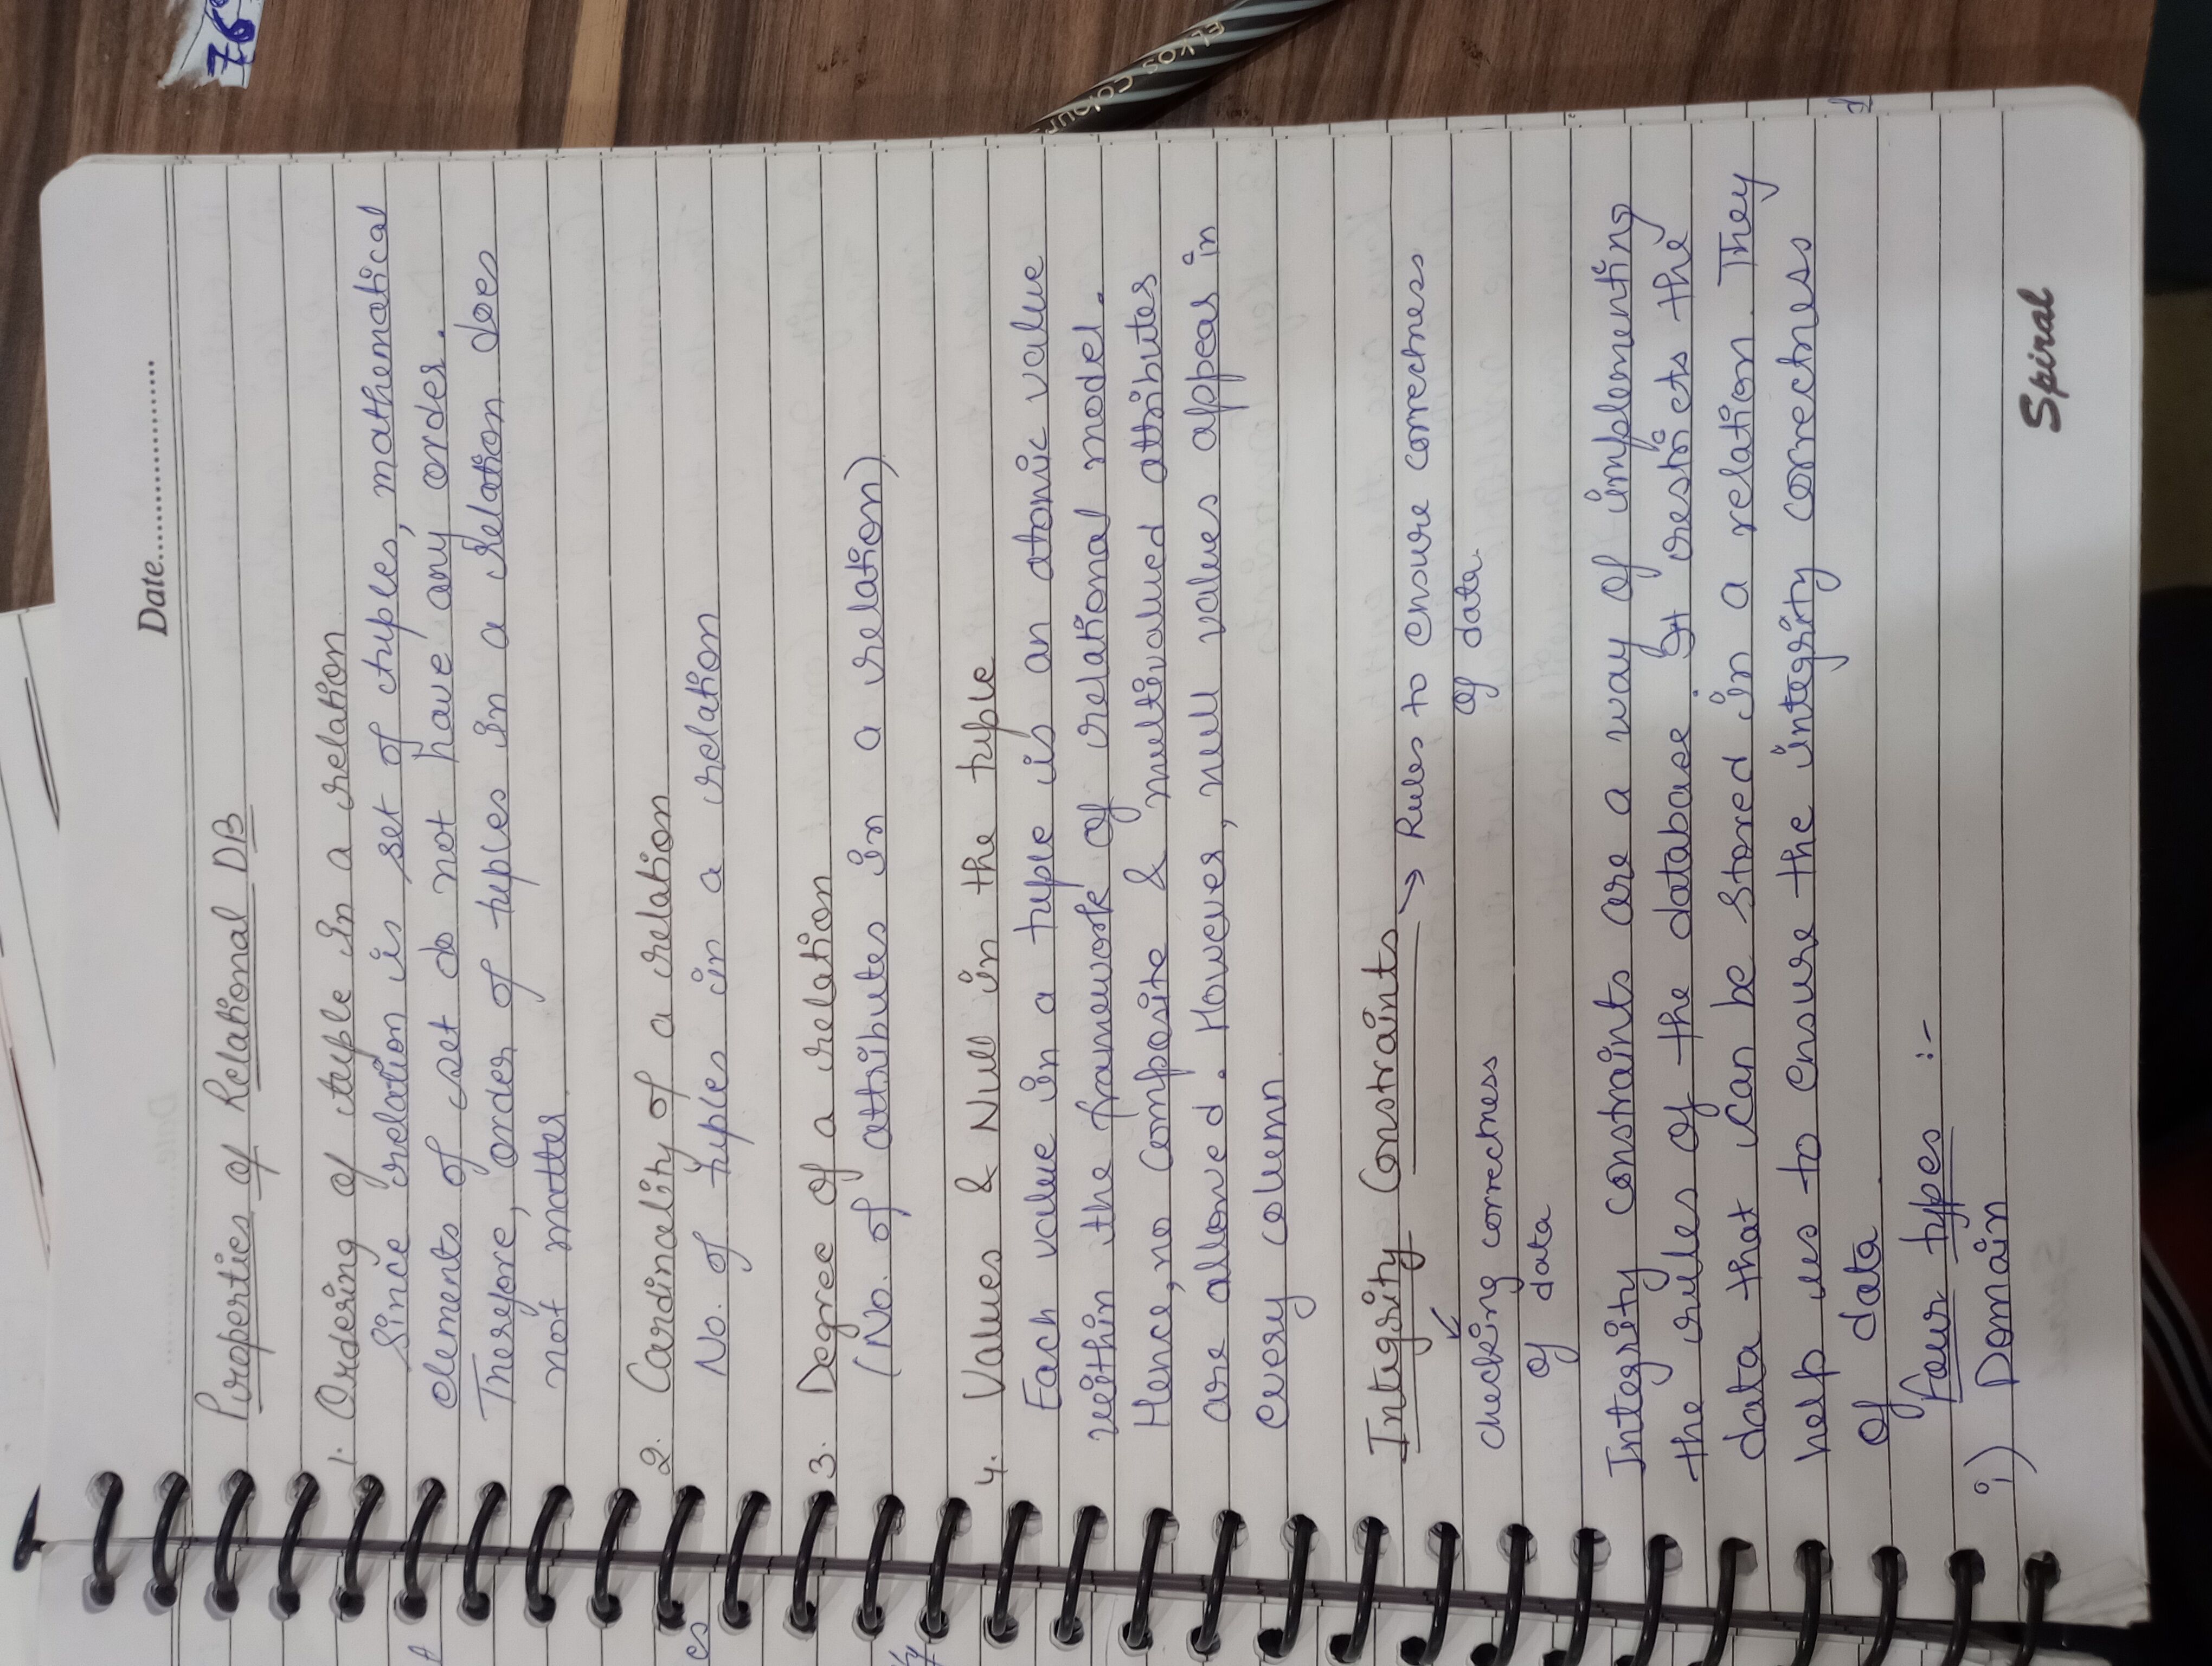 Date......................
Properties of Relational DB
1. Ordering of tuple in a relation
Since relation is set of tuples, mathematical
elements of set do not have any order.
Therefore, order of tuples in a relation does
not matter.
2. Cardinality of a relation
No. of tuples in a relation
3. Degree of a relation
(No. of attributes in a relation)
4. Values & Null in the tuple
Each value in a tuple is an atomic value
within the framework of relational model.
Hence, no composite & multivalued attributes
are allowed. However, null values appear in
every column.
Integrity Constraints → Rules to ensure correctness
of data.
↙
checking correctness
of data
Integrity constraints are a way of implementing
the rules of the database. It restricts the
data that can be stored in a relation. They
help us to ensure the integrity correctness
of data.
Four types :-
i) Domain
Spiral
76
es